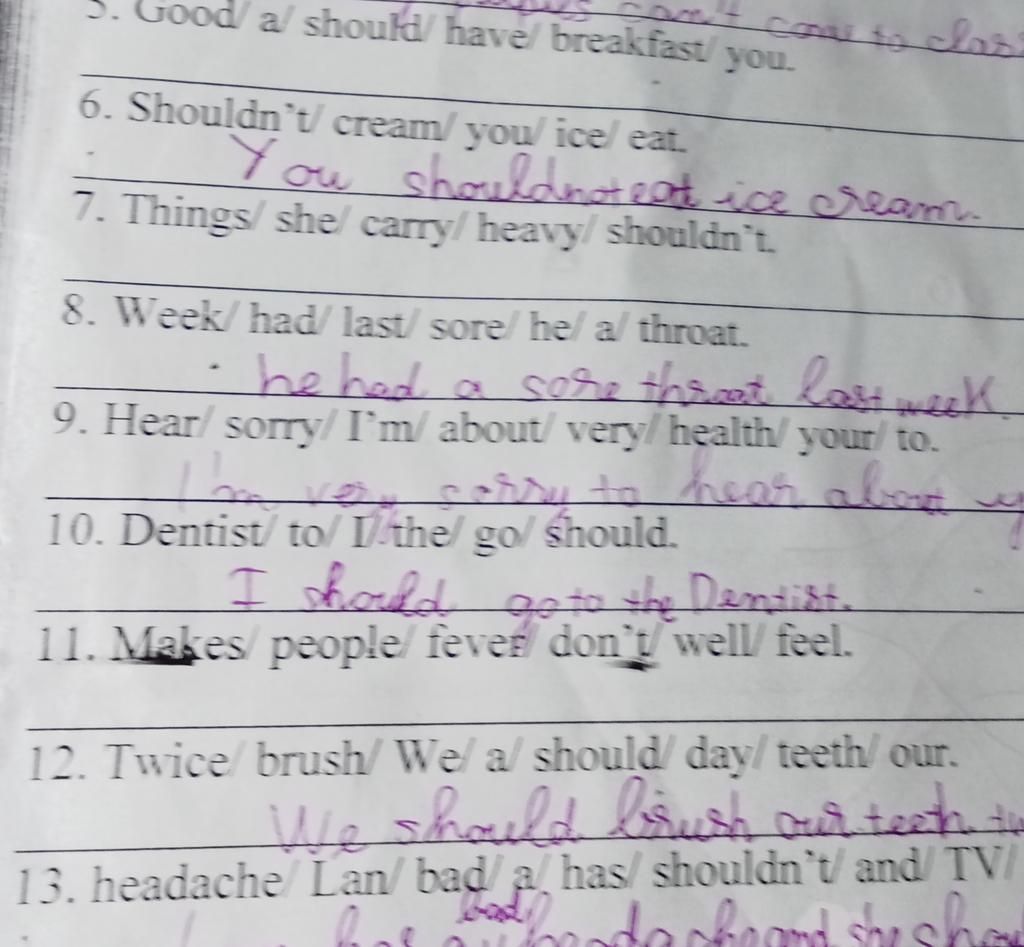 can't come to class
5. Good/ a/ should/ have/ breakfast/ you.
6. Shouldn't/ cream/ you/ ice/ eat.
You should not eat ice cream.
7. Things/ she/ carry/ heavy/ shouldn't.
8. Week/ had/ last/ sore/ he/ a/ throat.
he had a sore throat last week.
9. Hear/ sorry/ I'm/ about/ very/ health/ your/ to.
I'm very sorry to hear about y
10. Dentist/ to/ I/ the/ go/ should.
I should go to the Dentist.
11. Makes/ people/ fever/ don't/ well/ feel.
12. Twice/ brush/ We/ a/ should/ day/ teeth/ our.
We should brush our teeth tw
13. headache/ Lan/ bad/ a/ has/ shouldn't/ and/ TV/
bad
has a headache and she shou